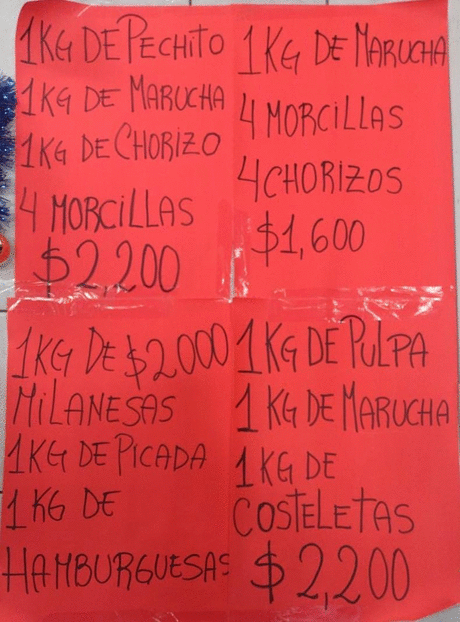 1KG DE PECHITO
1KG DE MARUCHA
1KG DE CHORIZO
4 MORCILLAS
$2,200
1KG DE MARUCHA
4 MORCILLAS
4 CHORIZOS
$1,600
1KG DE $2000
MILANESAS
1KG DE PICADA
1 KG DE
HAMBURGUESAS
1KG DE PULPA
1 KG DE MARUCHA
1 KG DE
COSTELETAS
$2,200